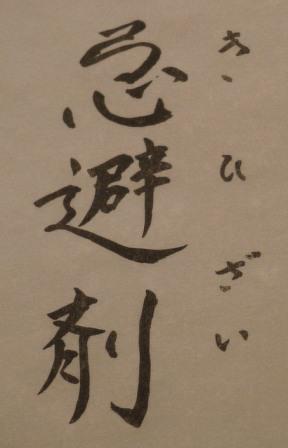 きひざい
忌避剤